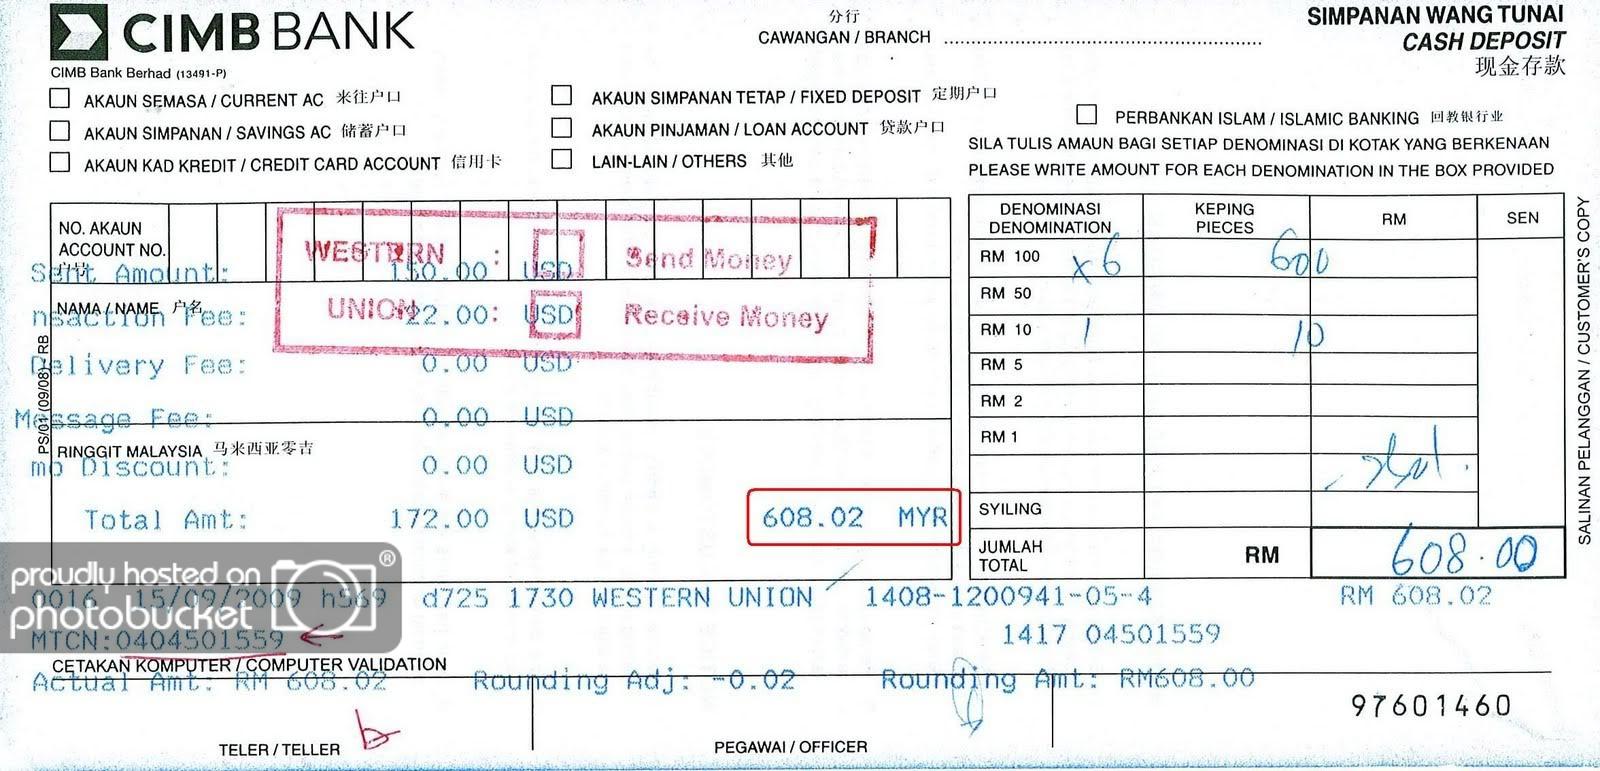 CIMB BANK
CIMB Bank Berhad (13491-P)
分行
CAWANGAN / BRANCH
SIMPANAN WANG TUNAI
CASH DEPOSIT
现金存款
AKAUN SEMASA / CURRENT AC 来往户口
AKAUN SIMPANAN / SAVINGS AC 储蓄户口
AKAUN KAD KREDIT / CREDIT CARD ACCOUNT 信用卡
AKAUN SIMPANAN TETAP / FIXED DEPOSIT 定期户口
AKAUN PINJAMAN / LOAN ACCOUNT 贷款户口
LAIN-LAIN / OTHERS 其他
PERBANKAN ISLAM / ISLAMIC BANKING 回教银行业
SILA TULIS AMAUN BAGI SETIAP DENOMINASI DI KOTAK YANG BERKENAAN
PLEASE WRITE AMOUNT FOR EACH DENOMINATION IN THE BOX PROVIDED
NO. AKAUN
ACCOUNT NO.
户号
WESTERN : Send Money
UNION : Receive Money
Sent Amount: 150.00 USD
NAMA / NAME 户名
nsaction Fee: 22.00 USD
Delivery Fee: 0.00 USD
Message Fee: 0.00 USD
RINGGIT MALAYSIA 马来西亚零吉
mo Discount: 0.00 USD
Total Amt: 172.00 USD 608.02 MYR
PS/01 (09/08) RB
DENOMINASI KEPING RM SEN
DENOMINATION PIECES
RM 100 x 6 600
RM 50
RM 10 1 10
RM 5
RM 2
RM 1
SYILING
JUMLAH
TOTAL RM 608.00
SALINAN PELANGGAN / CUSTOMER'S COPY
proudly hosted on
photobucket
0016 15/09/2009 h569 d725 1730 WESTERN UNION 1408-1200941-05-4 RM 608.02
MTCN:0404501559 1417 04501559
CETAKAN KOMPUTER / COMPUTER VALIDATION
Actual Amt: RM 608.02 Rounding Adj: -0.02 Rounding Amt: RM608.00
97601460
TELER / TELLER
PEGAWAI / OFFICER